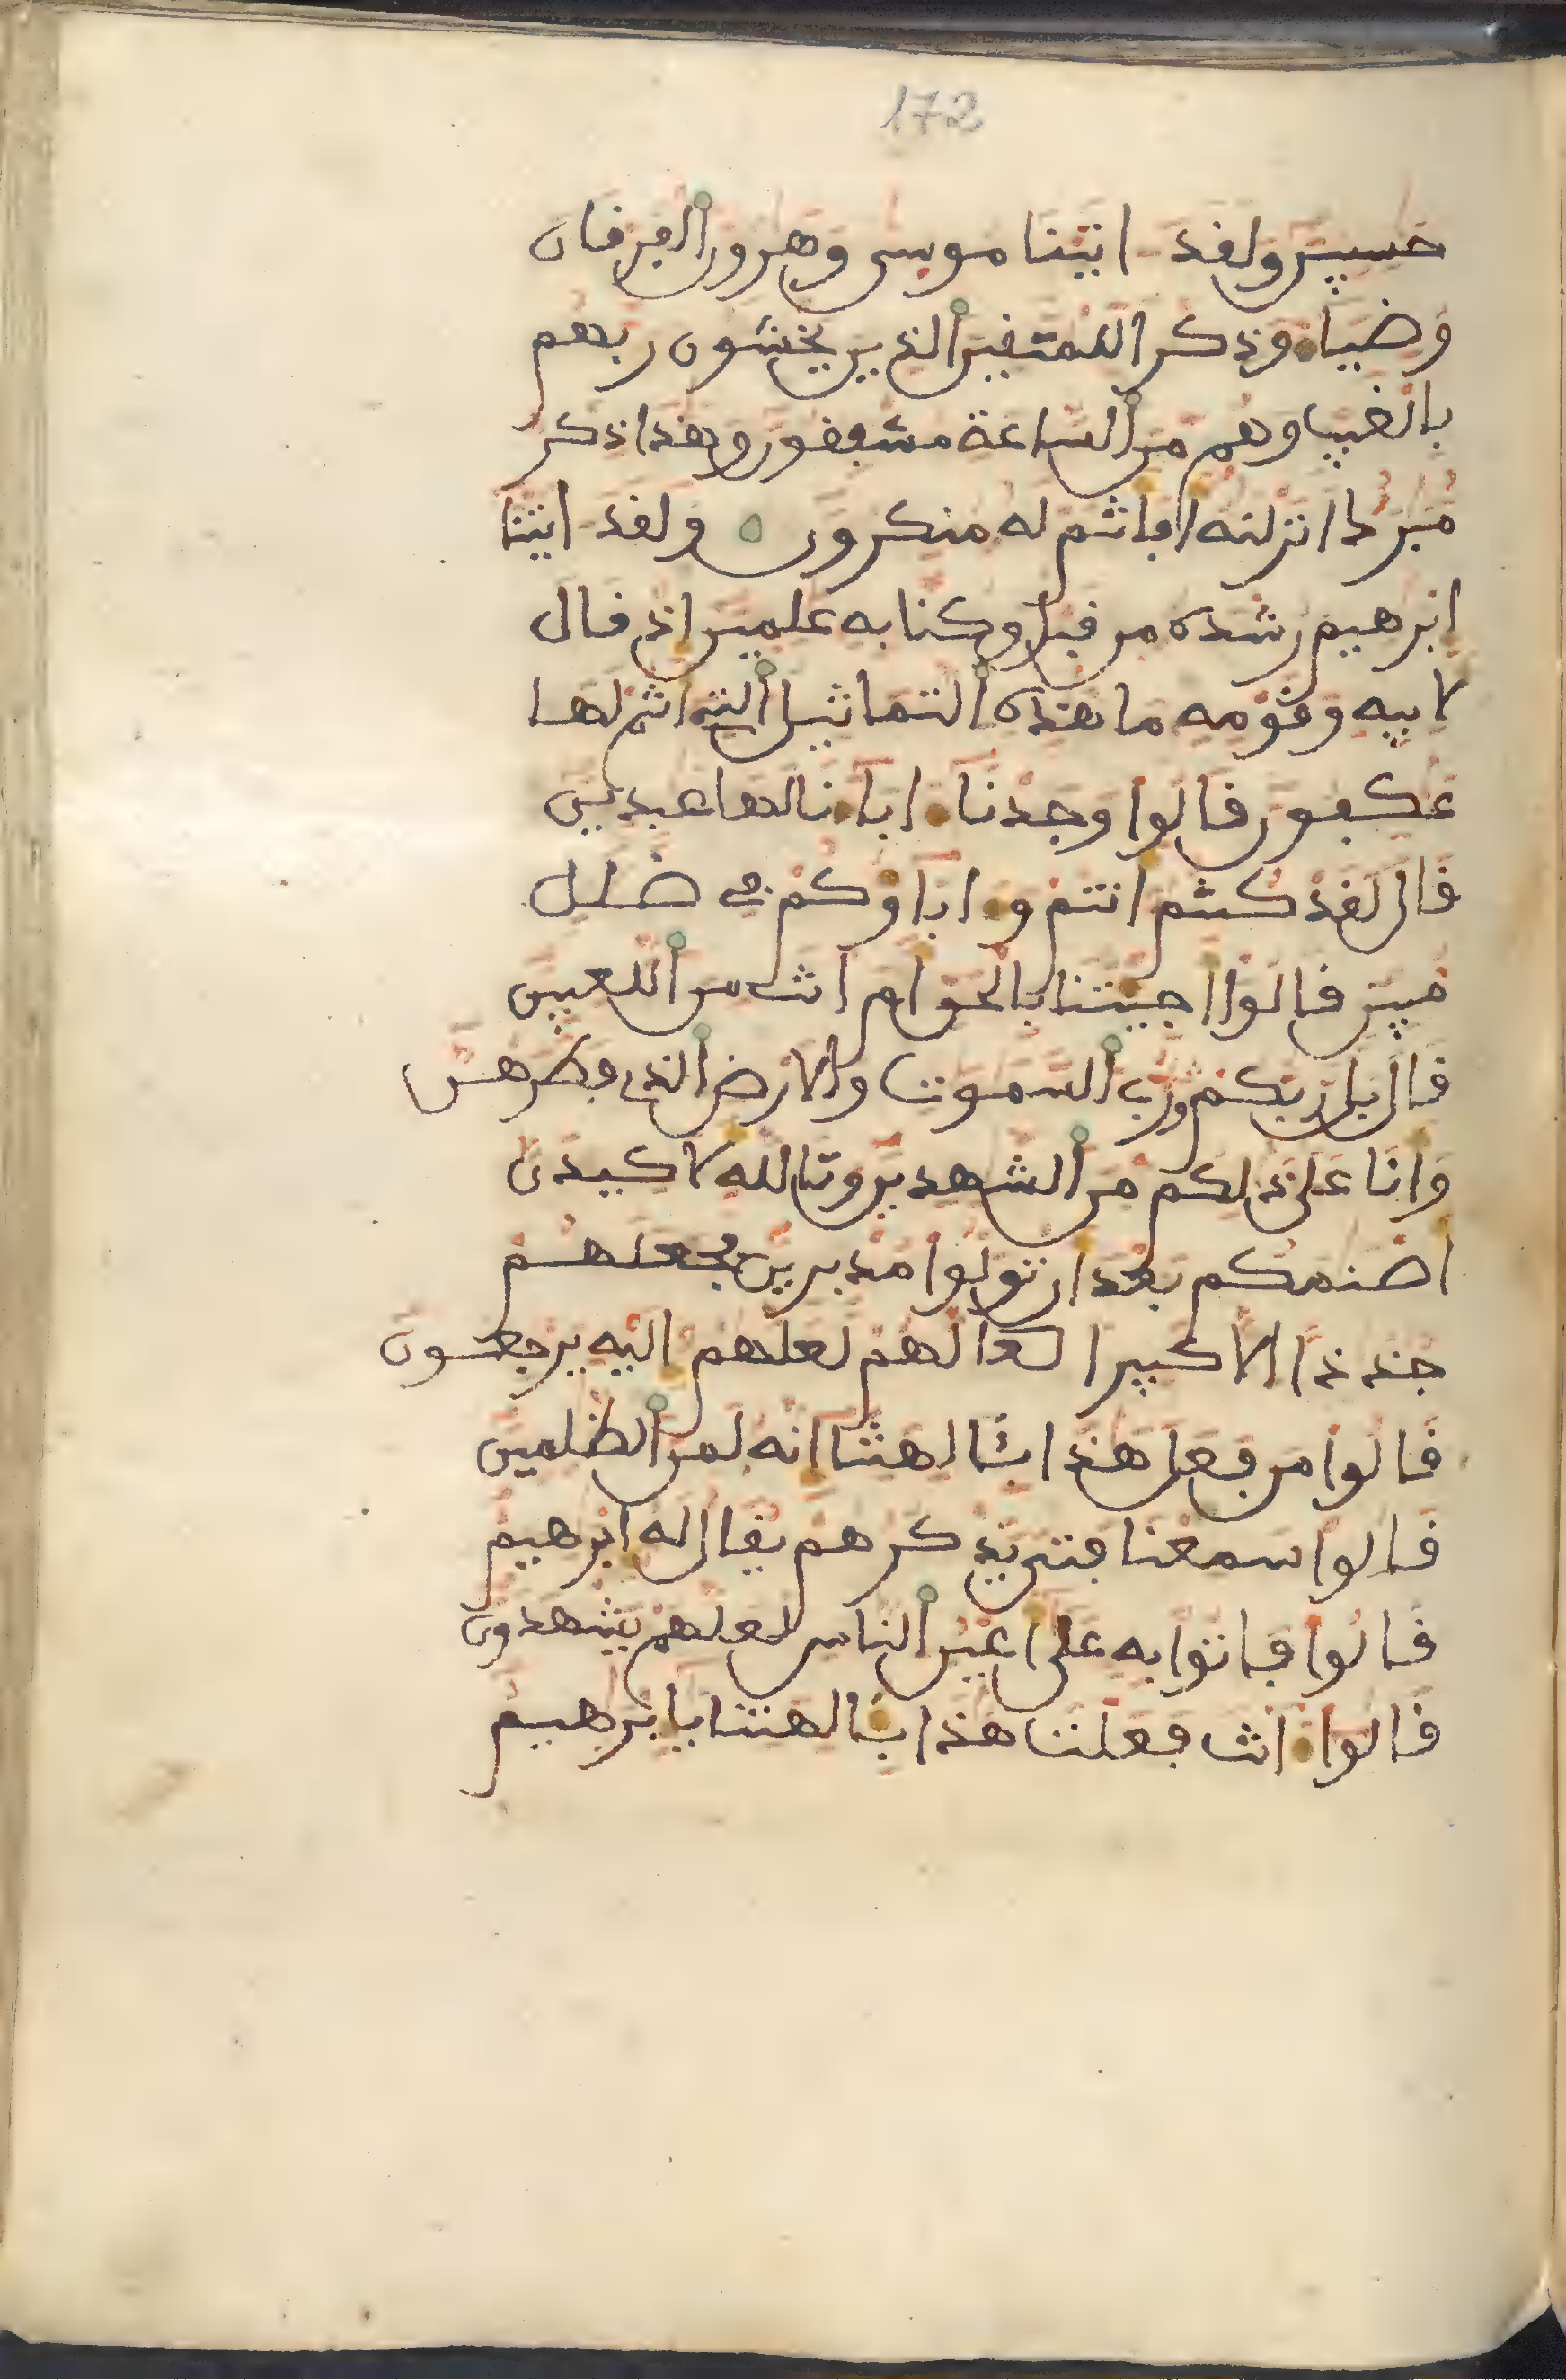 172
حسبين ولقد اتينا موسى وهرون الفرقان
وضياء وذكرا للمتقين الذين يخشون ربهم
بالغيب وهم من الساعة مشفقون وهذا ذكر
مبرك انزلنه افانتم له منكرون ولقد اتينا
ابرهيم رشده من قبل وكنا به علمين اذ قال
لابيه وقومه ما هذه التماثيل التي انتم لها
عكفون قالوا وجدنا اباءنا لها عبدين
قال لقد كنتم انتم وءاباؤكم في ضلل
مبين قالوا اجيتنا بالحق ام انت من اللعبين
قال بل ربكم رب السموت والارض الذي فطرهن
وانا على ذلكم من الشهدين وتالله لاكيدن
اصنمكم بعد ان تولوا مدبرين فجعلهم
جذذا الا كبيرا لهم لعلهم اليه يرجعون
قالوا من فعل هذا بئالهتنا انه لمن الظلمين
قالوا سمعنا فتى يذكرهم يقال له ابرهيم
قالوا فاتوا به على اعين الناس لعلهم يشهدون
قالوا ءانت فعلت هذا بئالهتنا يابرهيم